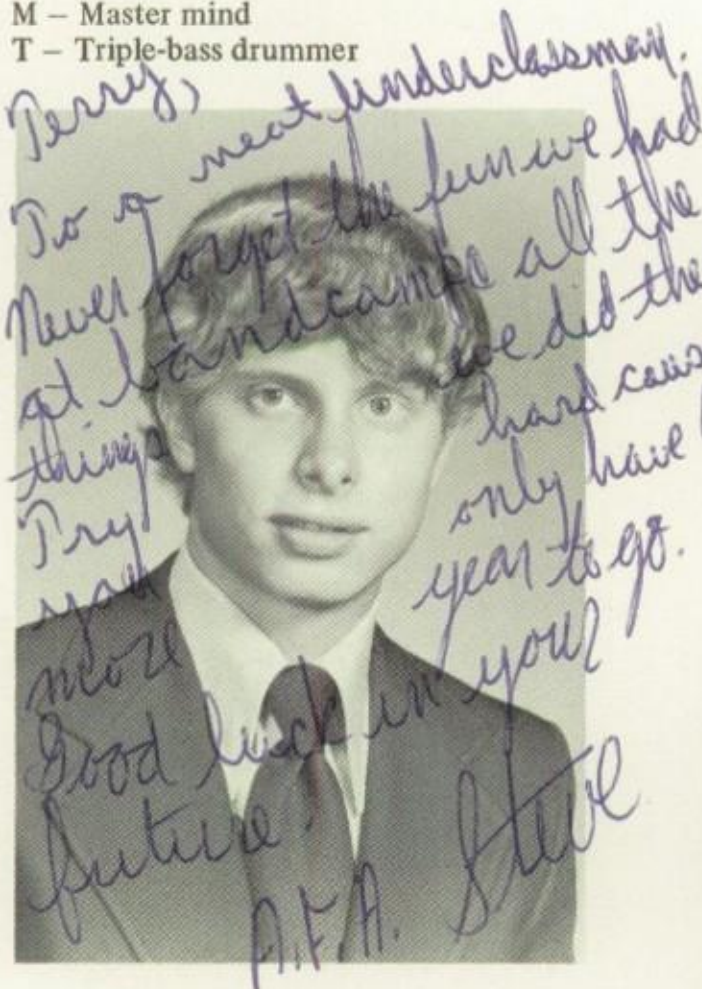 M – Master mind
T – Triple-bass drummer
Terry,
To a neat underclassman.
Never forget the fun we had
at bandcamp all the
things we did the
Try hard caus
you only have
more year to go.
Good luck in your
future
A.F.A. Steve